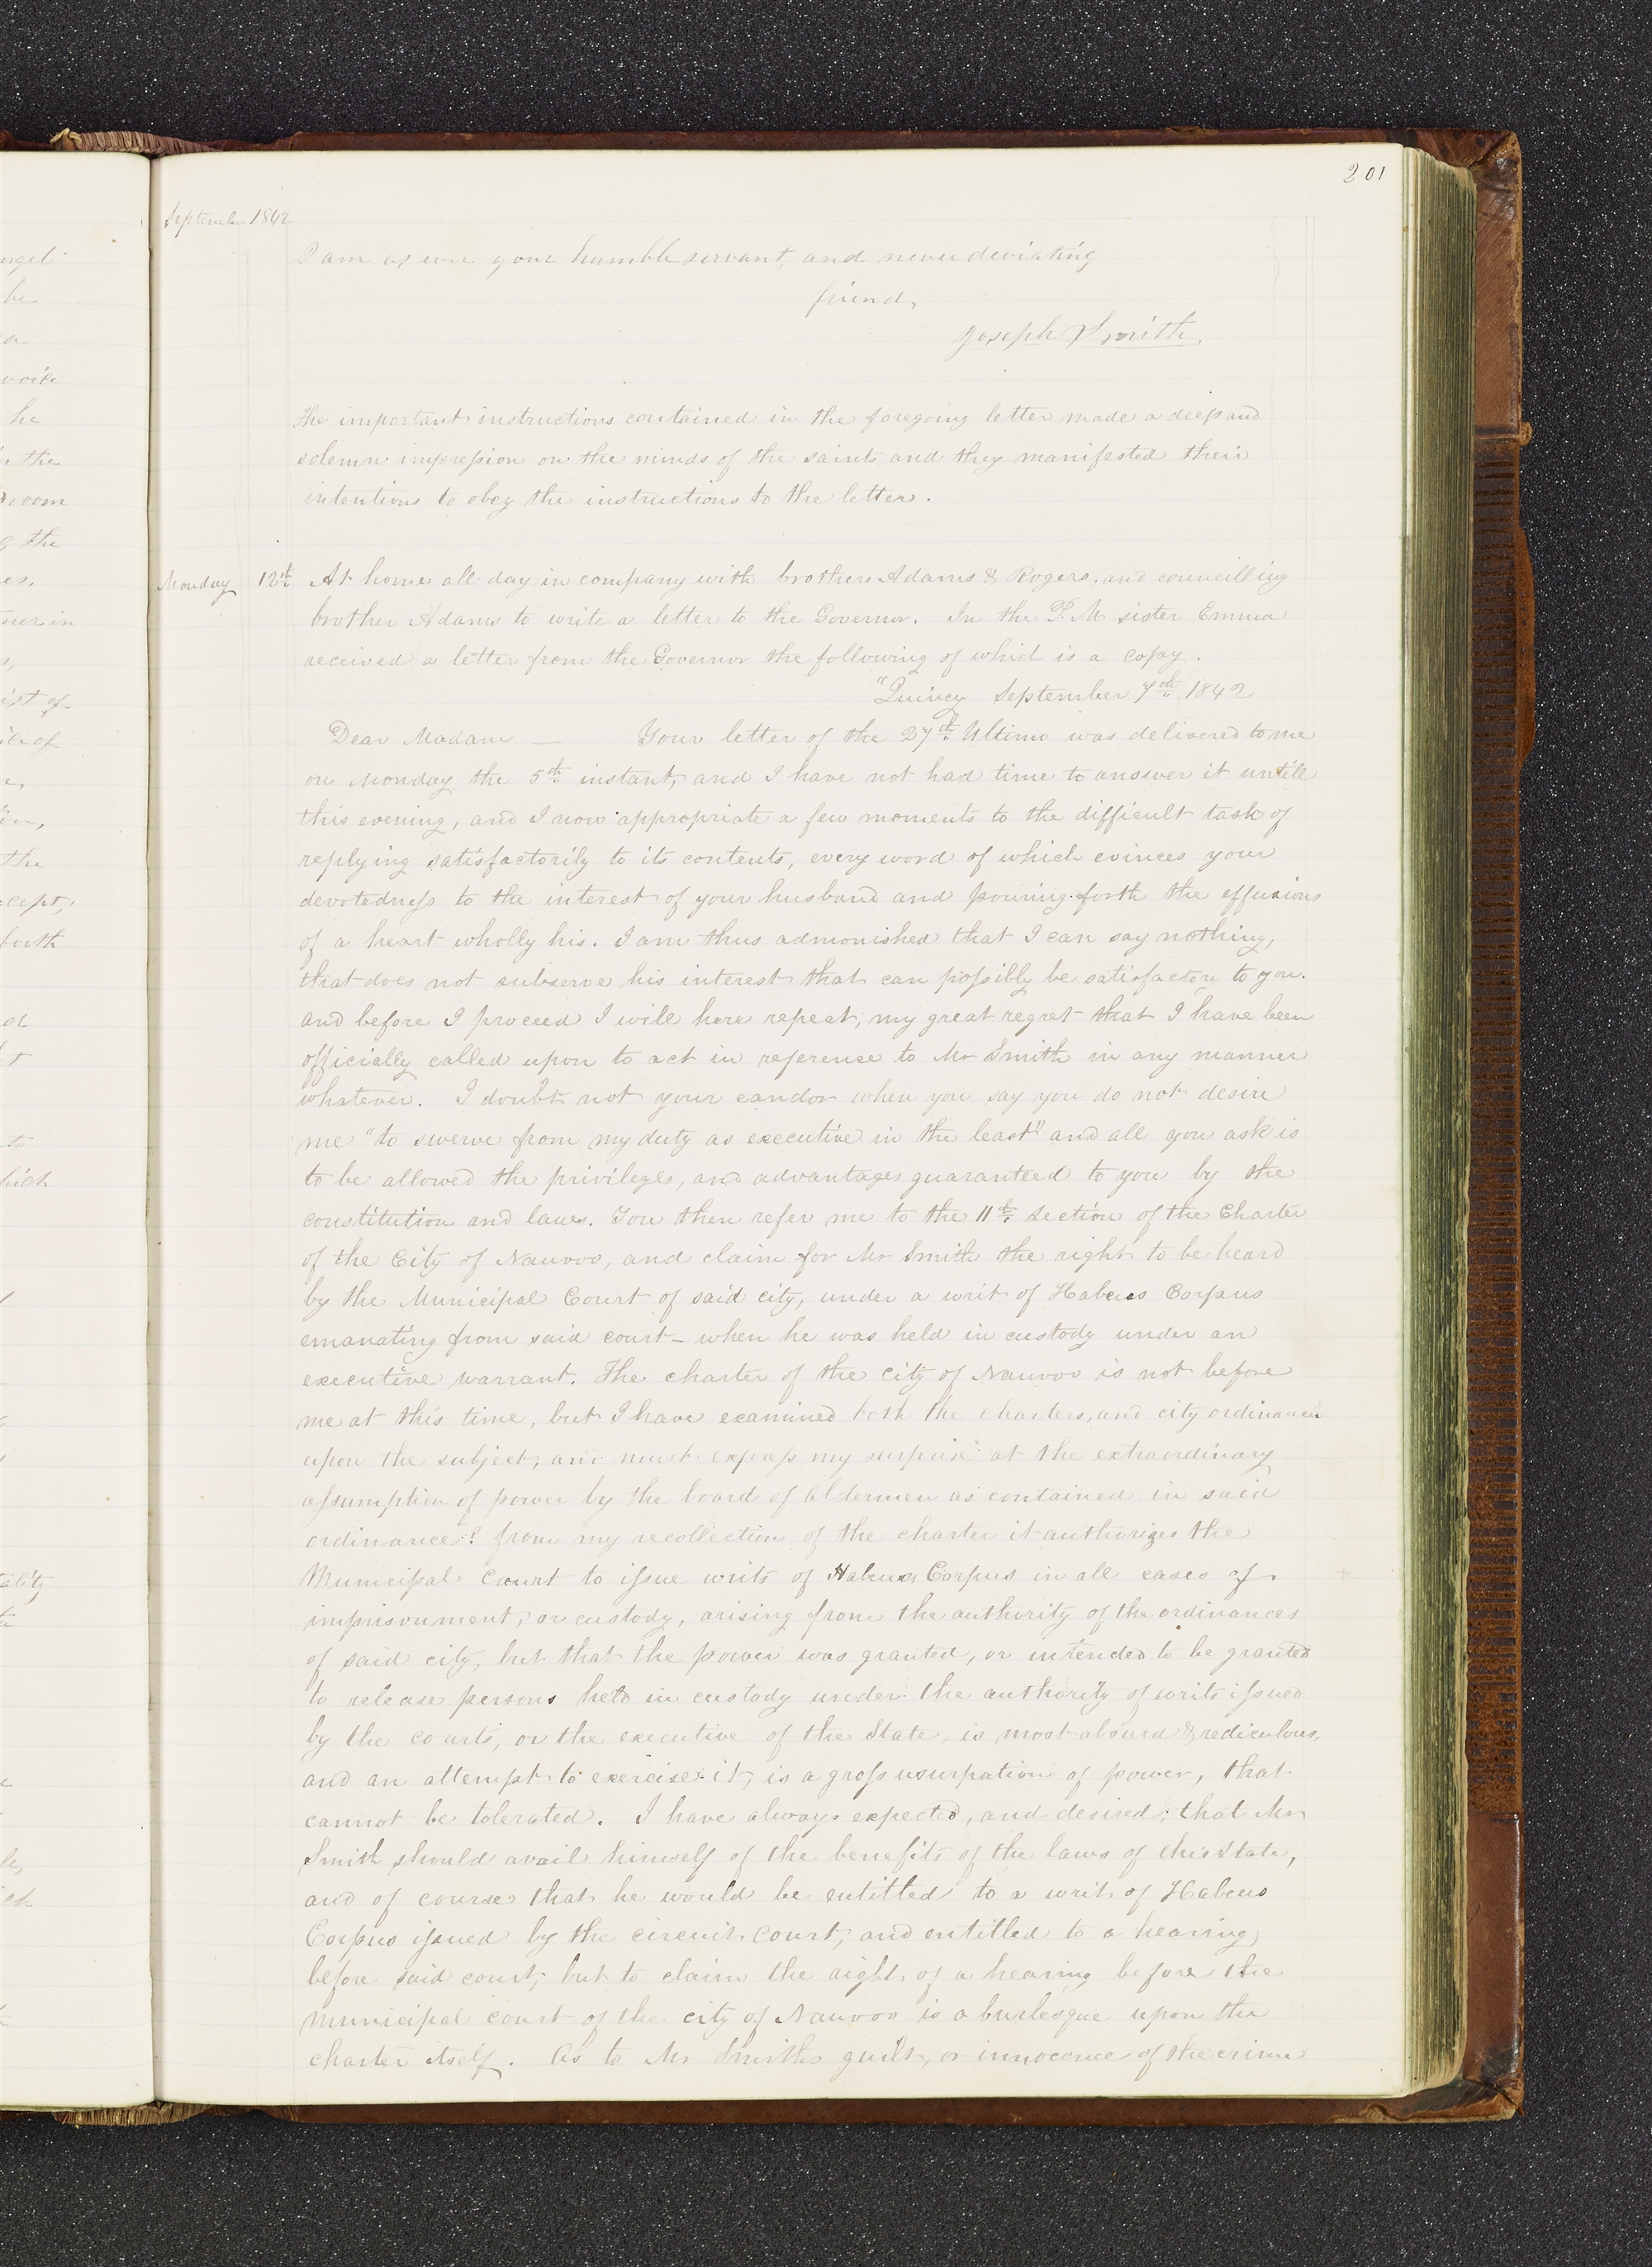 201
September 1842
I am as ever your humble servant, and never deviating
friend,
Joseph Smith.
The important instructions contained in the foregoing letter made a deep and
solemn impression on the minds of the saints and they manifested their
intentions to obey the instructions to the letter.
Monday 12th At home all day in company with brothers Adams & Rogers, and councilling
brother Adams to write a letter to the Governor. In the P.M. sister Emma
received a letter from the Governor the following of which is a copy.
"Quincy September 7th 1842
Dear Madam — Your letter of the 27th Ultimo was delivered to me
on Monday the 5th instant, and I have not had time to answer it untill
this evening, and I now appropriate a few moments to the difficult task of
replying satisfactorily to its contents, every word of which evinces your
devotedness to the interest of your husband and pouring forth the effusions
of a heart wholly his. I am thus admonished that I can say nothing,
that does not subserve his interest that can possibly be satisfactory to you.
and before I proceed I will here repeat, my great regret that I have been
officially called upon to act in reference to Mr Smith in any manner
whatever. I doubt not your candor when you say you do not desire
me "to swerve from my duty as executive in the least" and all you ask is
to be allowed the privileges, and advantages guaranteed to you by the
constitution and laws. You then refer me to the 11th Section of the Charter
of the City of Nauvoo, and claim for Mr Smith the right to be heard
by the Municipal Court of said city, under a writ of Habeus Corpus
emanating from said court— when he was held in custody under an
executive warrant. The charter of the city of Nauvoo is not before
me at this time, but I have examined both the charters, and city ordinances
upon the subject, and must express my surprise at the extraordinary
assumption of power by the board of aldermen as contained in said
ordinance! from my recollection of the charter it authorizes the
Municipal Court to issue writs of Habeus Corpus in all cases of
imprisonment, or custody, arising from the authority of the ordinances
of said city, but that the power was granted, or intended to be granted
to release persons held in custody under the authority of writs issued
by the courts, or the executive of the State, is most absurd & rediculous,
and an attempt to exercise it, is a gross usurpation of power, that
cannot be tolerated. I have always expected, and desired, that Mr
Smith should avail himself of the benefits of the laws of this State,
and of course that he would be entitled to a writ of Habeus
Corpus issued by the circuit court, and entitled to a hearing
before said court, but to claim the right of a hearing before the
municipal court of the city of Nauvoo is a burlesque upon the
charter itself. As to Mr Smiths guilt, or innocence of the crime